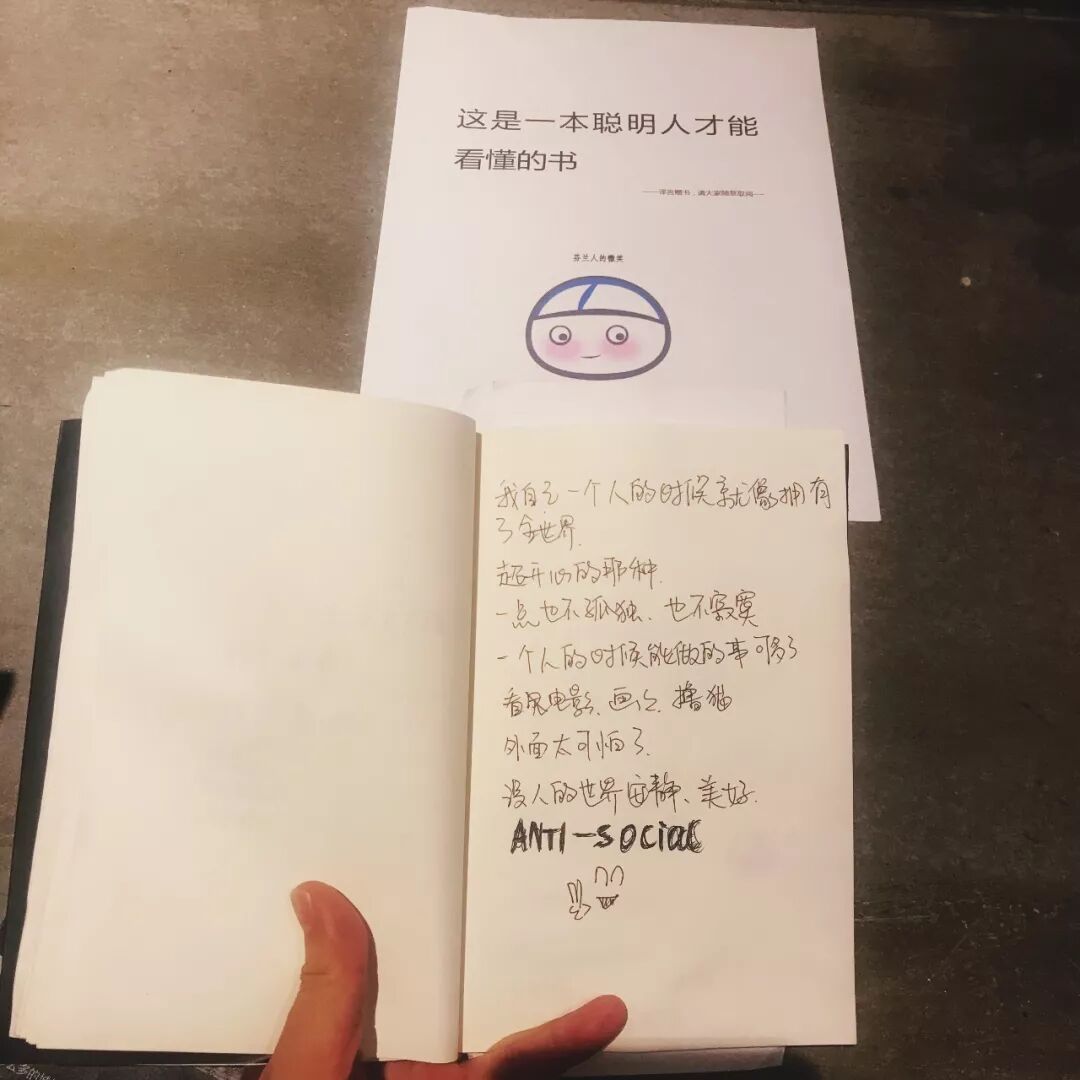 这是一本聪明人才能
看懂的书
芬兰人的微笑
我自己一个人的时候就像拥有
了全世界.
超开心的那种.
一点也不孤独、也不寂寞
一个人的时候能做的事可多了
看鬼电影、画画、撸猫
外面太可怕了.
没人的世界安静、美好.
ANTI-SOCIAL